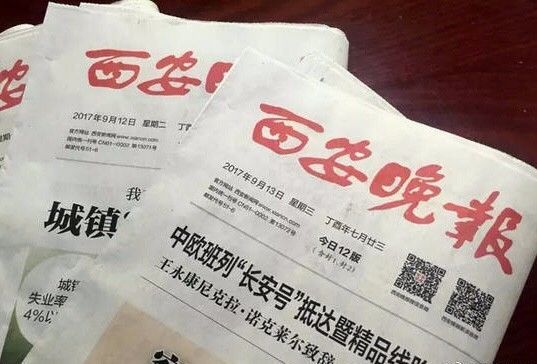 报
西安晚报
2017年9月12日 星期二
官方网站 西安新闻网www.xiancn.com
国内统一刊号 CN61-0002 第13071号
邮发代号51-6
城镇
失业率
4%以
西安晚报
2017年9月13日 星期三 丁酉年七月廿三
官方网站 西安新闻网www.xiancn.com
国内统一刊号 CN61-0002 第13072号
邮发代号51-6
今日12版
中欧班列“长安号”抵达暨精品线路
王永康尼克拉·诺克莱尔致辞